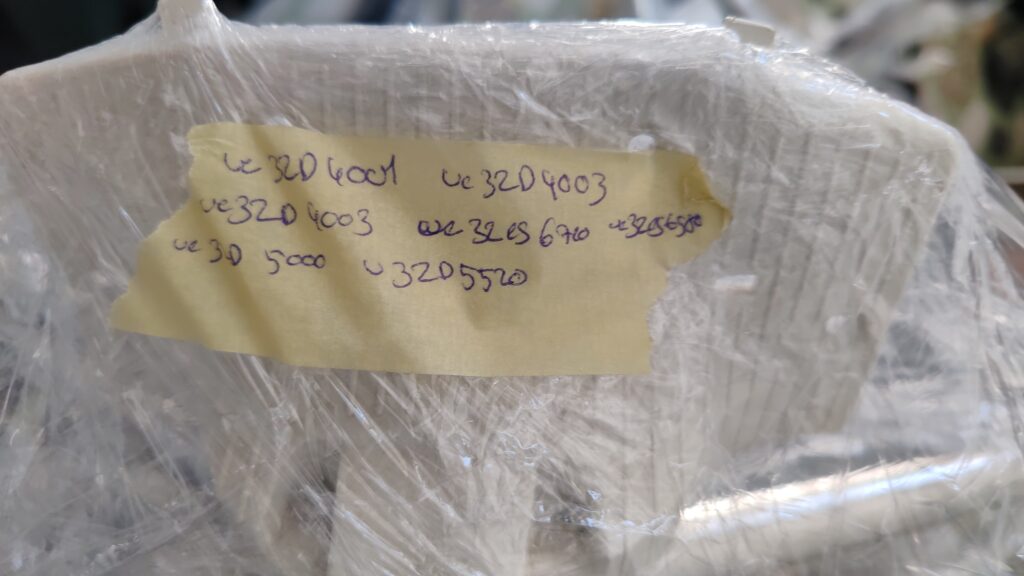 ue 32D 4001 ue 32D 4003
ue 32D 4003 ue 32es 6720 ue32es6580
ue 3D 5000 u 32D5520